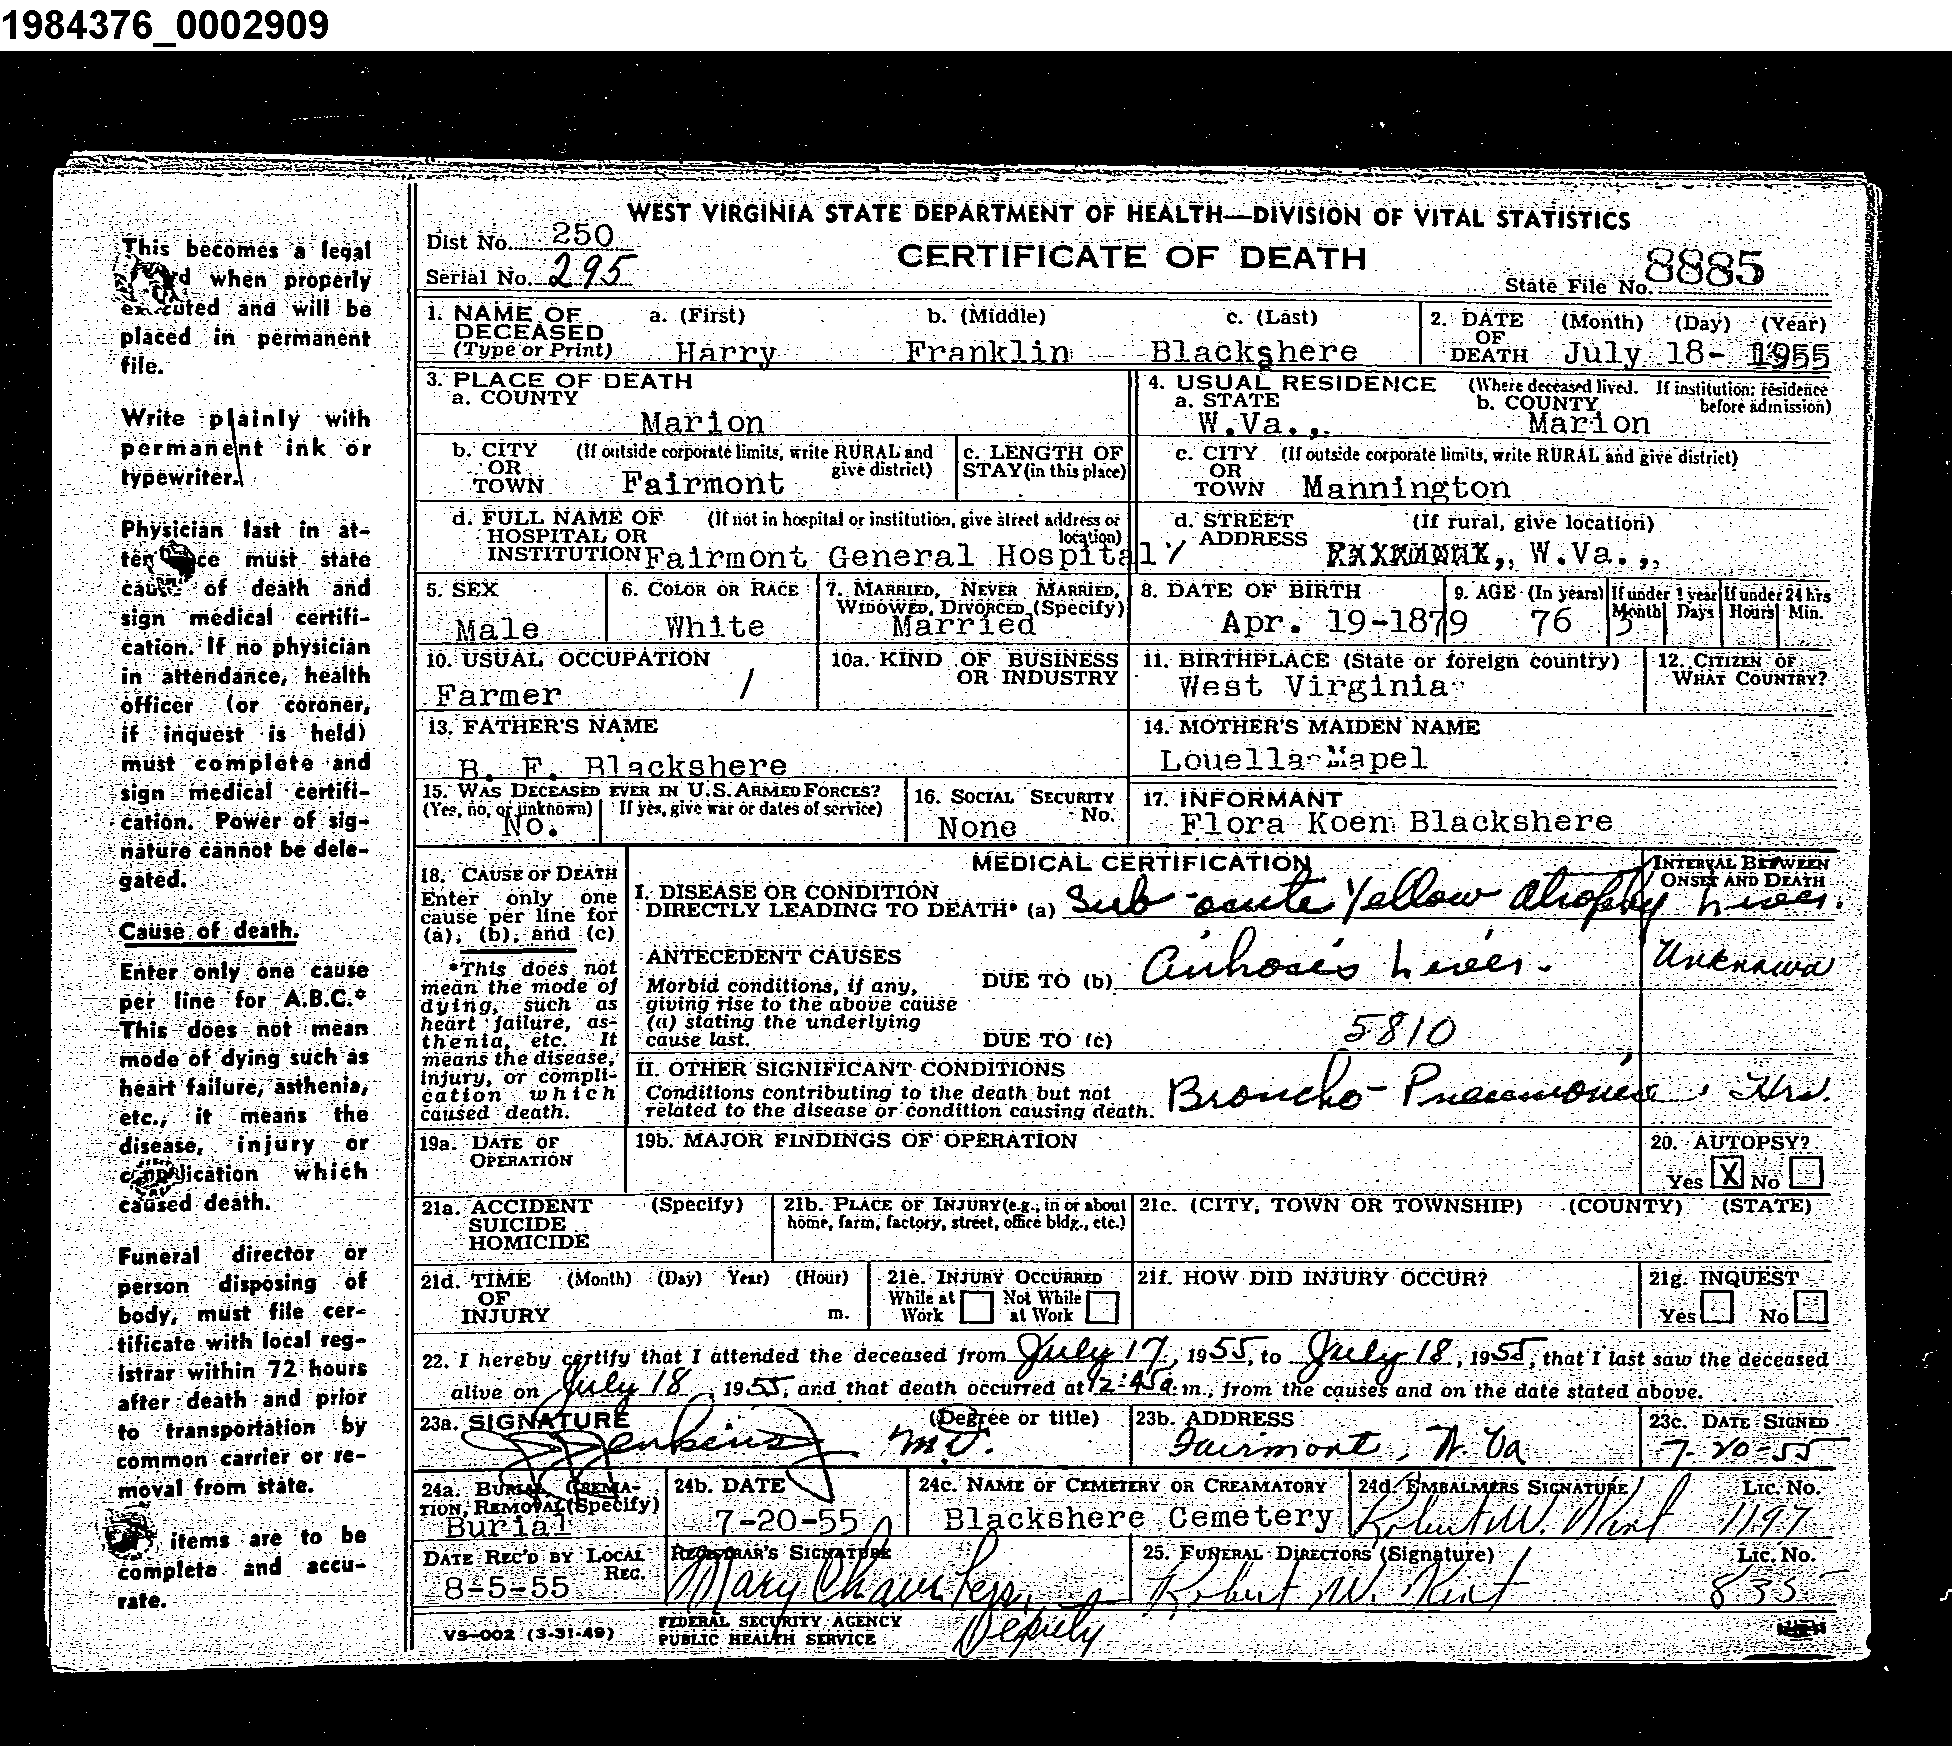 1984376_0002909
WEST VIRGINIA STATE DEPARTMENT OF HEALTH—DIVISION OF VITAL STATISTICS
Dist No. 250
CERTIFICATE OF DEATH
Serial No. 295
State File No. 8885
1. NAME OF DECEASED (Type or Print) a. (First) b. (Middle) c. (Last)
Harry Franklin Blackshere
2. DATE OF DEATH (Month) (Day) (Year)
July 18- 1955
3. PLACE OF DEATH
a. COUNTY
Marion
4. USUAL RESIDENCE (Where deceased lived. If institution; residence before admission)
a. STATE b. COUNTY
W.Va.,. Marion
b. CITY OR TOWN (If outside corporate limits, write RURAL and give district)
Fairmont
c. LENGTH OF STAY (in this place)
c. CITY OR TOWN (If outside corporate limits, write RURAL and give district)
Mannington
d. FULL NAME OF HOSPITAL OR INSTITUTION (If not in hospital or institution, give street address or location)
Fairmont General Hospital
d. STREET ADDRESS (If rural, give location)
W.Va.,,
5. SEX
Male
6. COLOR OR RACE
White
7. MARRIED, NEVER MARRIED, WIDOWED, DIVORCED (Specify)
Married
8. DATE OF BIRTH
Apr. 19-1879
9. AGE (In years) If under 1 year Month Days If under 24 hrs Hours Min.
76 3
10. USUAL OCCUPATION
Farmer /
10a. KIND OF BUSINESS OR INDUSTRY
11. BIRTHPLACE (State or foreign country)
West Virginia
12. CITIZEN OF WHAT COUNTRY?
13. FATHER'S NAME
B. F. Blackshere
14. MOTHER'S MAIDEN NAME
Louella Mapel
15. WAS DECEASED EVER IN U.S. ARMED FORCES?
(Yes, no, or unknown) If yes, give war or dates of service)
No.
16. SOCIAL SECURITY No.
None
17. INFORMANT
Flora Koen Blackshere
18. CAUSE OF DEATH
Enter only one
cause per line for
(a), (b), and (c)
*This does not
mean the mode of
dying, such as
heart failure, as-
thenia, etc. It
means the disease,
injury, or compli-
cation which
caused death.
MEDICAL CERTIFICATION
INTERVAL BETWEEN ONSET AND DEATH
I. DISEASE OR CONDITION
DIRECTLY LEADING TO DEATH* (a) Sub-acute Yellow atrophy Liver.
ANTECEDENT CAUSES
Morbid conditions, if any,
giving rise to the above cause
(a) stating the underlying
cause last.
DUE TO (b) Cirrhosis Liver. Unknown
DUE TO (c) 5810
II. OTHER SIGNIFICANT CONDITIONS
Conditions contributing to the death but not
related to the disease or condition causing death. Broncho-Pneumonia, Hrs.
19a. DATE OF OPERATION
19b. MAJOR FINDINGS OF OPERATION
20. AUTOPSY?
Yes X No
21a. ACCIDENT SUICIDE HOMICIDE (Specify)
21b. PLACE OF INJURY (e.g., in or about home, farm, factory, street, office bldg., etc.)
21c. (CITY, TOWN OR TOWNSHIP) (COUNTY) (STATE)
21d. TIME OF INJURY (Month) (Day) Year) (Hour) m.
21e. INJURY OCCURRED
While at Work Not While at Work
21f. HOW DID INJURY OCCUR?
21g. INQUEST
Yes No
22. I hereby certify that I attended the deceased from July 17, 1955, to July 18, 1955, that I last saw the deceased
alive on July 18, 1955, and that death occurred at 2:45 a.m., from the causes and on the date stated above.
23a. SIGNATURE (Degree or title)
Jenkins M.D.
23b. ADDRESS
Fairmont, W. Va
23c. DATE SIGNED
7-20-55
24a. BURIAL, CREMATION, REMOVAL (Specify)
Burial
24b. DATE
7-20-55
24c. NAME OF CEMETERY OR CREAMATORY
Blackshere Cemetery
24d. EMBALMERS SIGNATURE Lic. No.
Robert W. Kent 1197
DATE REC'D BY LOCAL REC.
8-5-55
REGISTRAR'S SIGNATURE
Mary Chambers,
Deputy
25. FUNERAL DIRECTORS (Signature) Lic. No.
Robert W. Kent 835
VS-002 (3-31-49)
FEDERAL SECURITY AGENCY
PUBLIC HEALTH SERVICE
This becomes a legal
when properly
executed and will be
placed in permanent
file.
Write plainly with
permanent ink or
typewriter.
Physician last in at-
tendance must state
cause of death and
sign medical certifi-
cation. If no physician
in attendance, health
officer (or coroner,
if inquest is held)
must complete and
sign medical certifi-
cation. Power of sig-
nature cannot be dele-
gated.
Cause of death.
Enter only one cause
per line for A.B.C.*
This does not mean
mode of dying such as
heart failure, asthenia,
etc., it means the
disease, injury or
complication which
caused death.
Funeral director or
person disposing of
body, must file cer-
tificate with local reg-
istrar within 72 hours
after death and prior
to transportation by
common carrier or re-
moval from state.
items are to be
complete and accu-
rate.